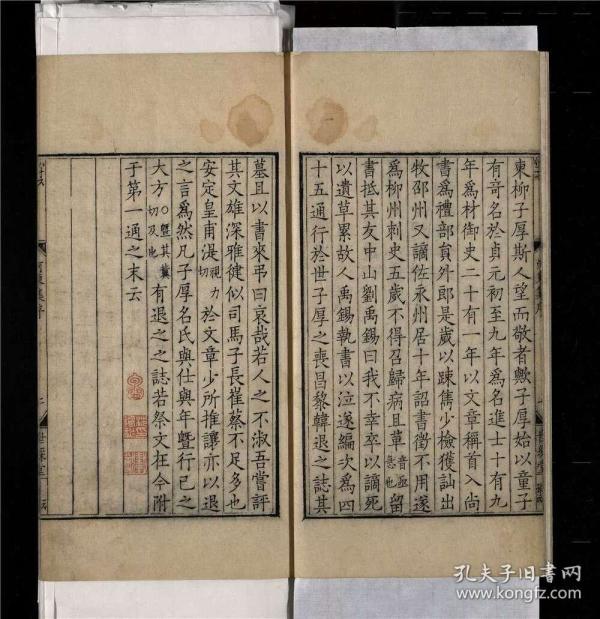 東柳子厚斯人望而敬者歟子厚始以童子
有奇名於貞元初至九年爲名進士十有九
年爲材御史二十有一年以文章稱首入尚
書爲禮部員外郎是歲以踈雋少檢獲訕出
牧邵州又謫佐永州居十年詔書徵不用遂
爲柳州刺史五歲不得召歸病且革音亟急也留
書抵其友中山劉禹錫曰我不幸卒以謫死
以遺草累故人禹錫執書以泣遂編次爲四
十五通行於世子厚之喪昌黎韓退之誌其
墓且以書來弔曰哀哉若人之不淑吾嘗評
其文雄深雅健似司馬子長崔蔡不足多也
安定皇甫湜視力切於文章少所推讓亦以退
之言爲然凡子厚名氏與仕與年暨行已之
大方○暨其冀切及也有退之之誌若祭文在今附
于第一通之末云
世綵堂
孔夫子旧书网
www.kongfz.com